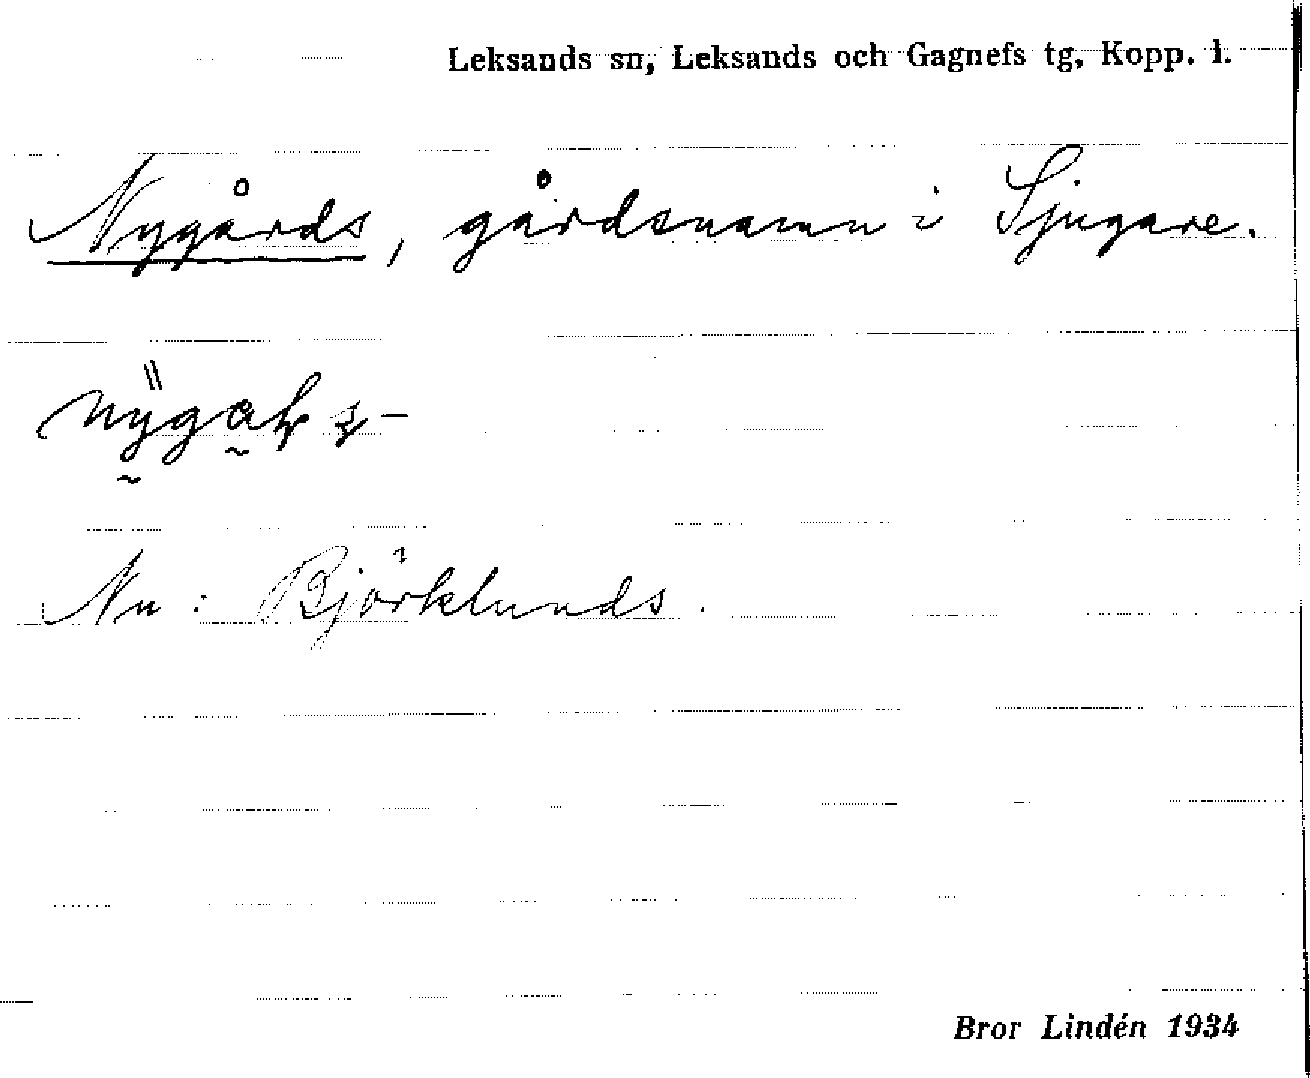 Leksands sn, Leksands och Gagnefs tg, Kopp. l.
Nygårds, gårdsnamn i Sjugare.
Nu: Björklunds.
Bror Lindén 1934